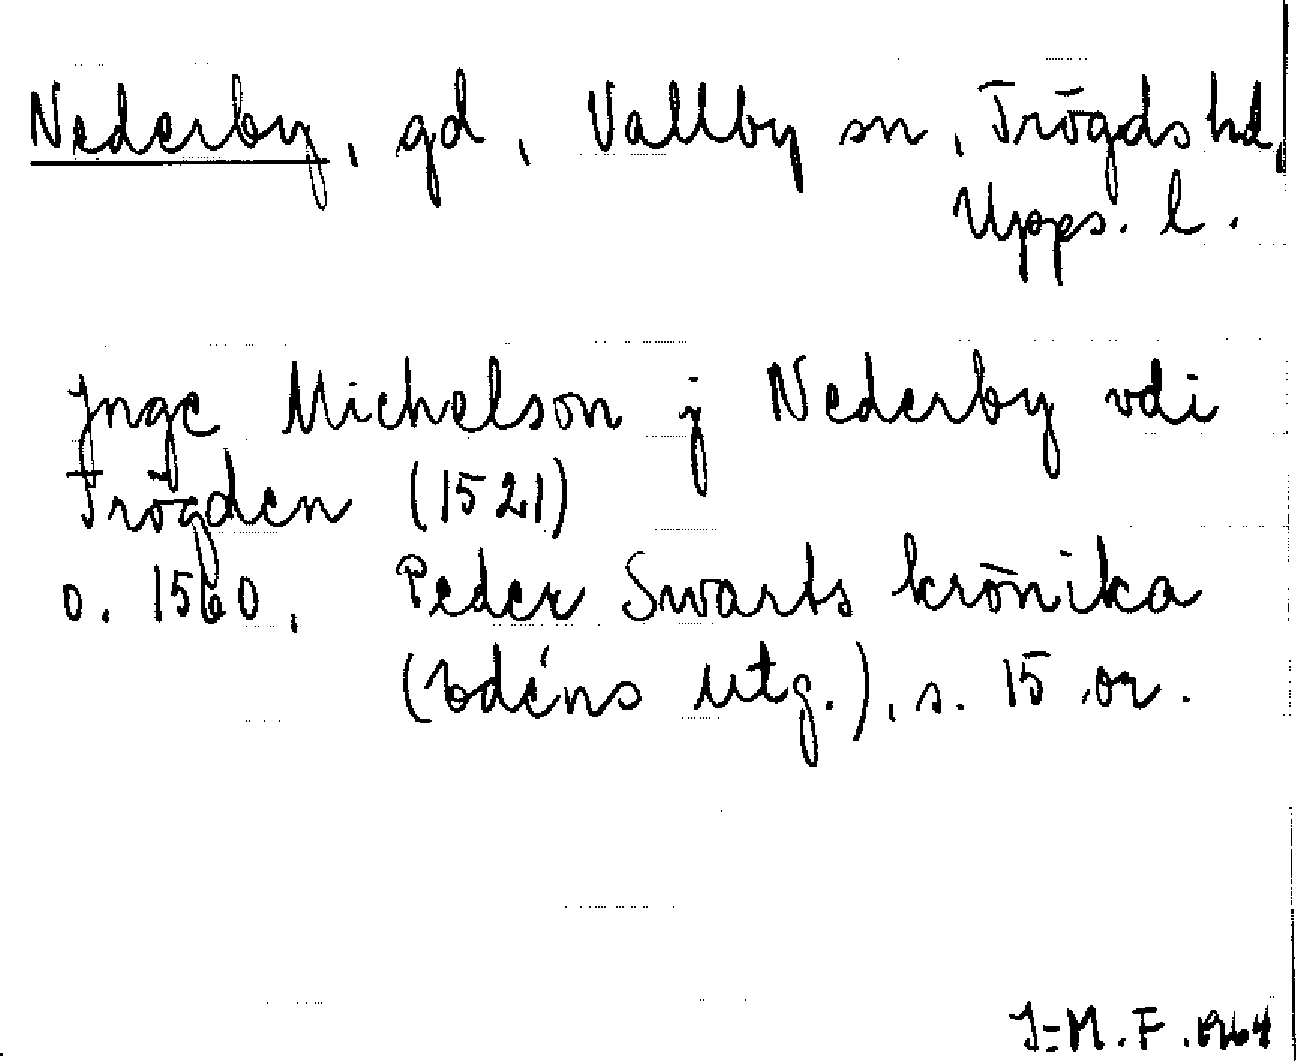 Nederby, gd, Vallby sn, Trögds hd,
Upps. l.
Jnge Michelson j Nederby vdi
Trögden (1521)
o. 1560. Peder Swarts krönika
(Edéns utg.), s. 15 or.
J-M.F. 1964